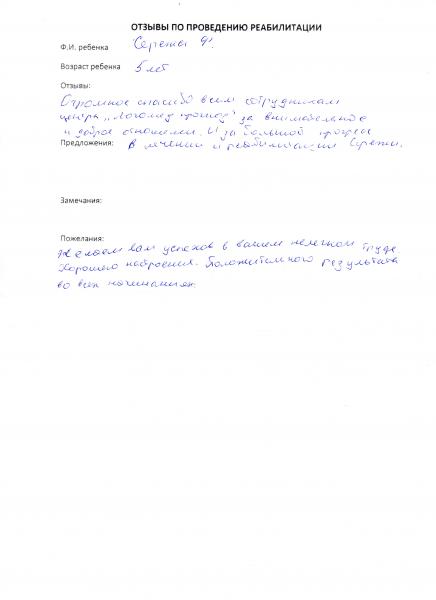 ОТЗЫВЫ ПО ПРОВЕДЕНИЮ РЕАБИЛИТАЦИИ
Ф.И. ребенка Сережа Ф.
Возраст ребенка 5 лет
Отзывы:
Огромное спасибо всем сотрудникам
центра за внимательное
и доброе отношение. И за большой прогресс
Предложения: в лечении и реабилитации Сережи.
Замечания:
Пожелания:
Желаем вам успехов в вашем нелегком труде
Хорошего настроения. Положительного результата
во всех начинаниях.